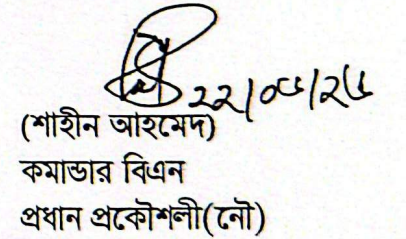 (শাহীন আহমেদ)
কমান্ডার বিএন
প্রধান প্রকৌশলী(নৌ)